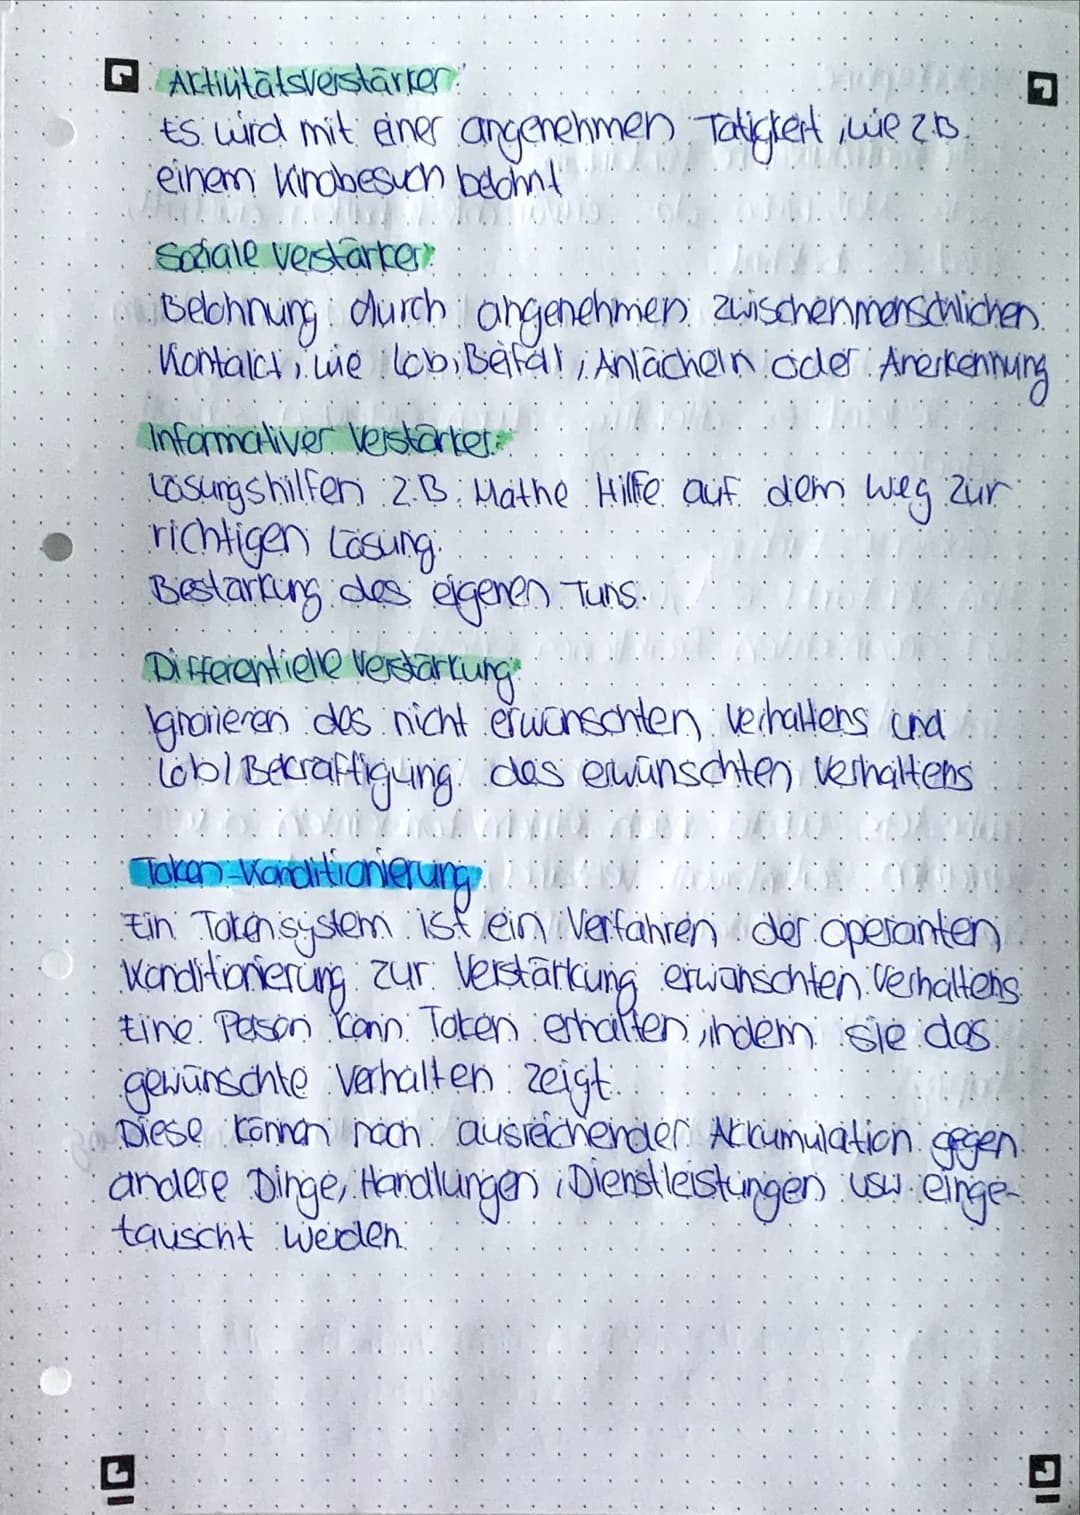 Aktivitätsverstärker:
Es wird mit einer angenehmen Tätigkeit, wie z.B.
einem Kinobesuch belohnt
Soziale Verstärker:
Belohnung durch angenehmen zwischenmenschlichen
Kontakt, wie Lob, Beifall, Anlächeln oder Anerkennung
Informativer Verstärker:
Lösungshilfen z.B. Mathe Hilfe auf dem Weg zur
richtigen Lösung.
Bestärkung des eigenen Tuns.
Differentielle Verstärkung:
Ignorieren des nicht erwünschten Verhaltens und
Lob/Bekräftigung des erwünschten Verhaltens
Token-Konditionierung:
Ein Tokensystem ist ein Verfahren der operanten
Konditionierung zur Verstärkung erwünschten Verhaltens.
Eine Person kann Token erhalten, indem sie das
gewünschte Verhalten zeigt.
Diese können nach ausreichender Akkumulation gegen
andere Dinge, Handlungen, Dienstleistungen usw. einge-
tauscht werden.